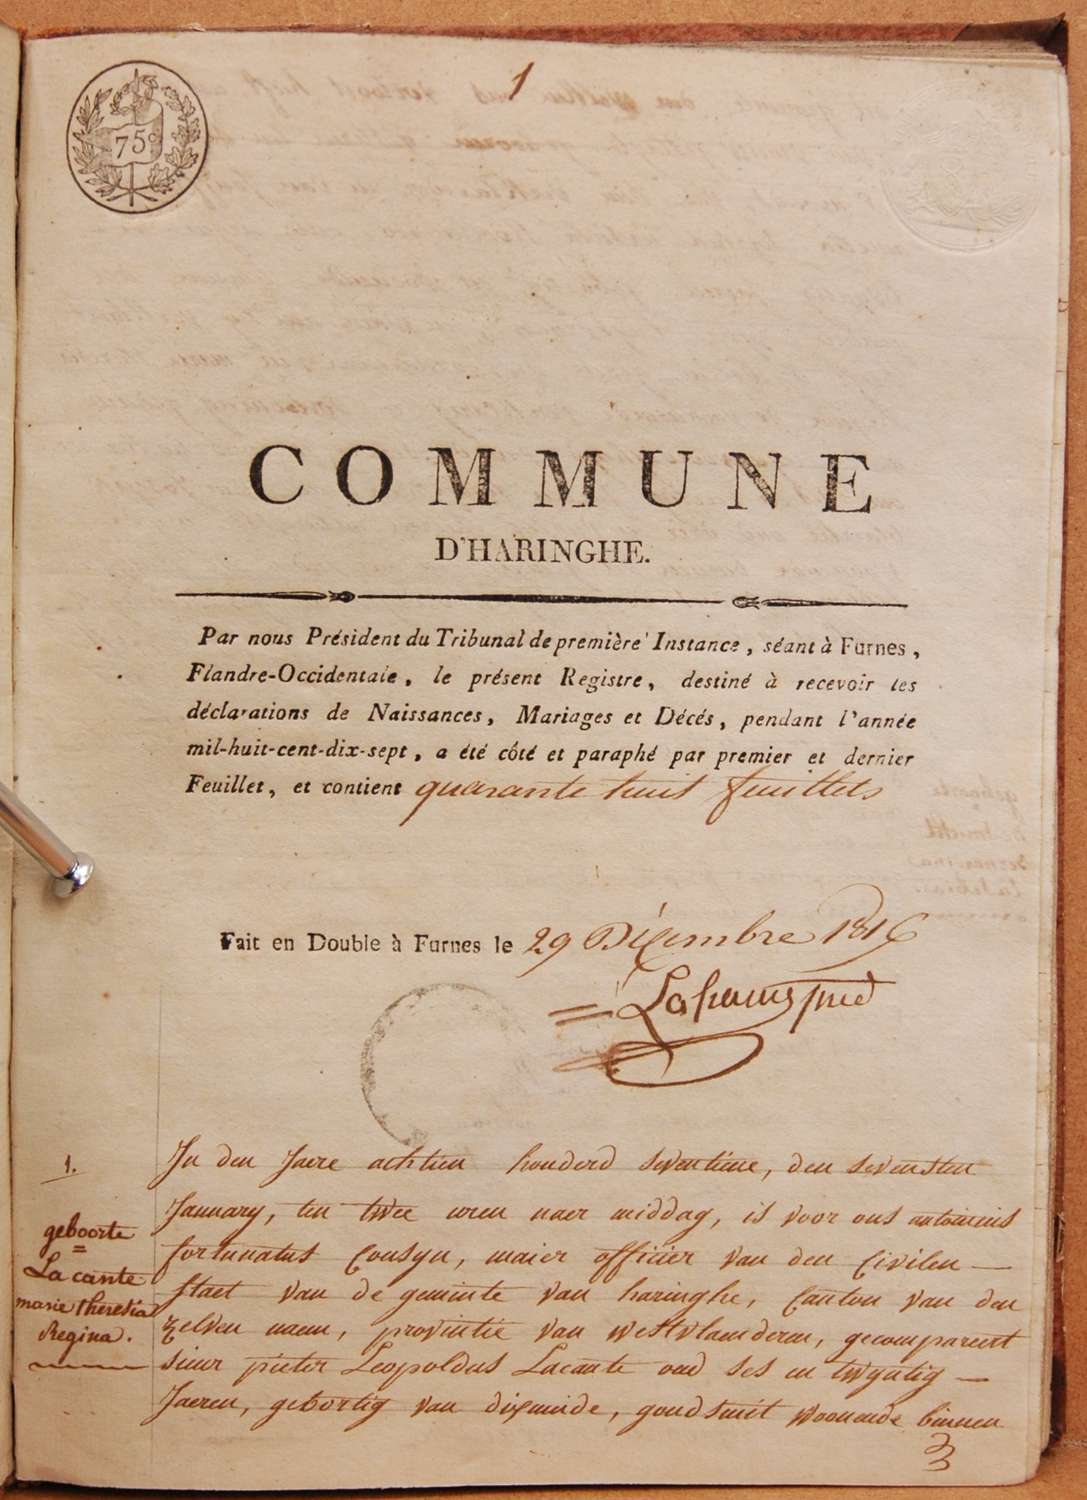 1
75c
COMMUNE
D'HARINGHE.
Par nous Président du Tribunal de première Instance, séant à Furnes,
Flandre-Occidentale, le présent Registre, destiné à recevoir les
déclarations de Naissances, Mariages et Décés, pendant l'année
mil-huit-cent-dix-sept, a été côté et paraphé par premier et dernier
Feuillet, et contient quarante huit feuillets
Fait en Double à Furnes le 29 Décembre 1816
1.
geboorte
=
Lacante
marie theresia
Regina.
In den Jaere achtien honderd seventiene, den sevensten
January, ten twee uren naer middag, is voor ons antoinius
fortunatus Cousyn, maier officier van den Civilen —
staet van de gemeinte van haringhe, Canton van den
zelven naem, provintie van westvlaenderen, gecompareert
sieur pieter Leopoldus Lacante oud ses en twyntig —
Jaeren, gebortig van dixmude, goudsmit woonende binnen